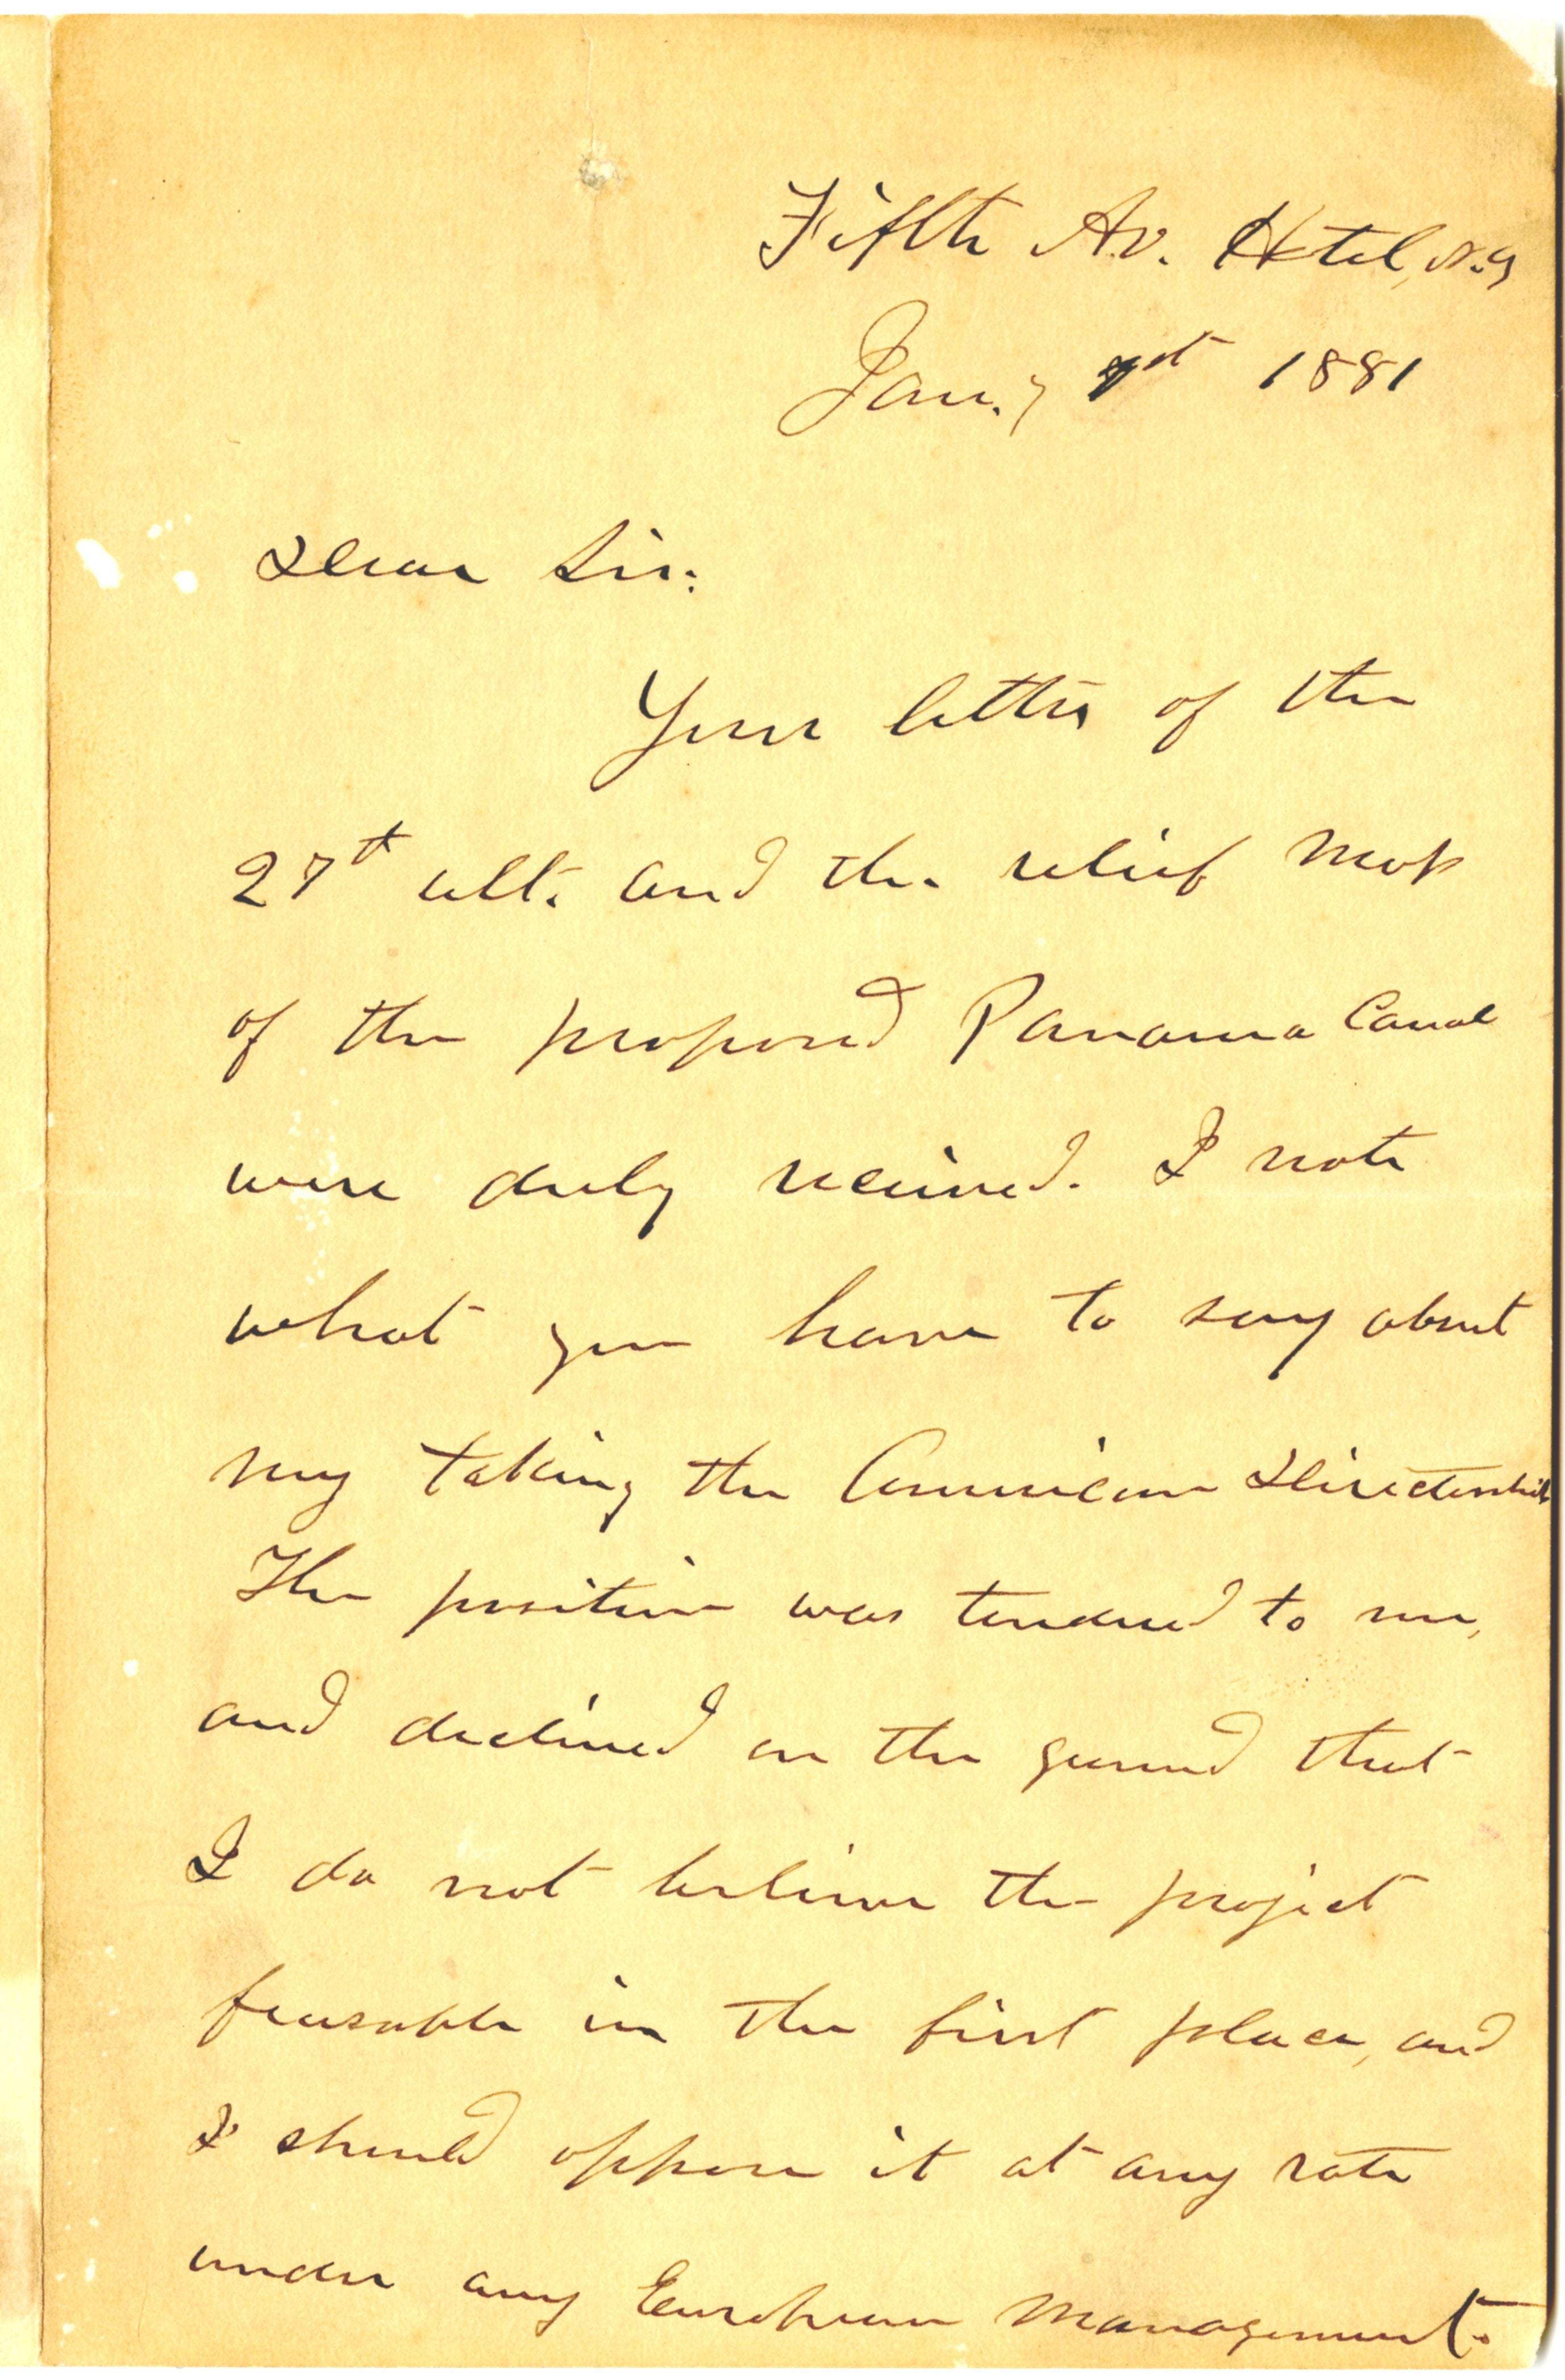 Fifth Av. Hotel, N.Y
Jan.y 1st 1881
Dear Sir:
Your letter of the
27th ult. and the relief map
of the proposed Panama Canal
were duly received. I note
what you have to say about
my taking the American Directorship
The position was tendered to me,
and declined on the ground that
I do not believe the project
feasable in the first place, and
I should oppose it at any rate
under any European Management.